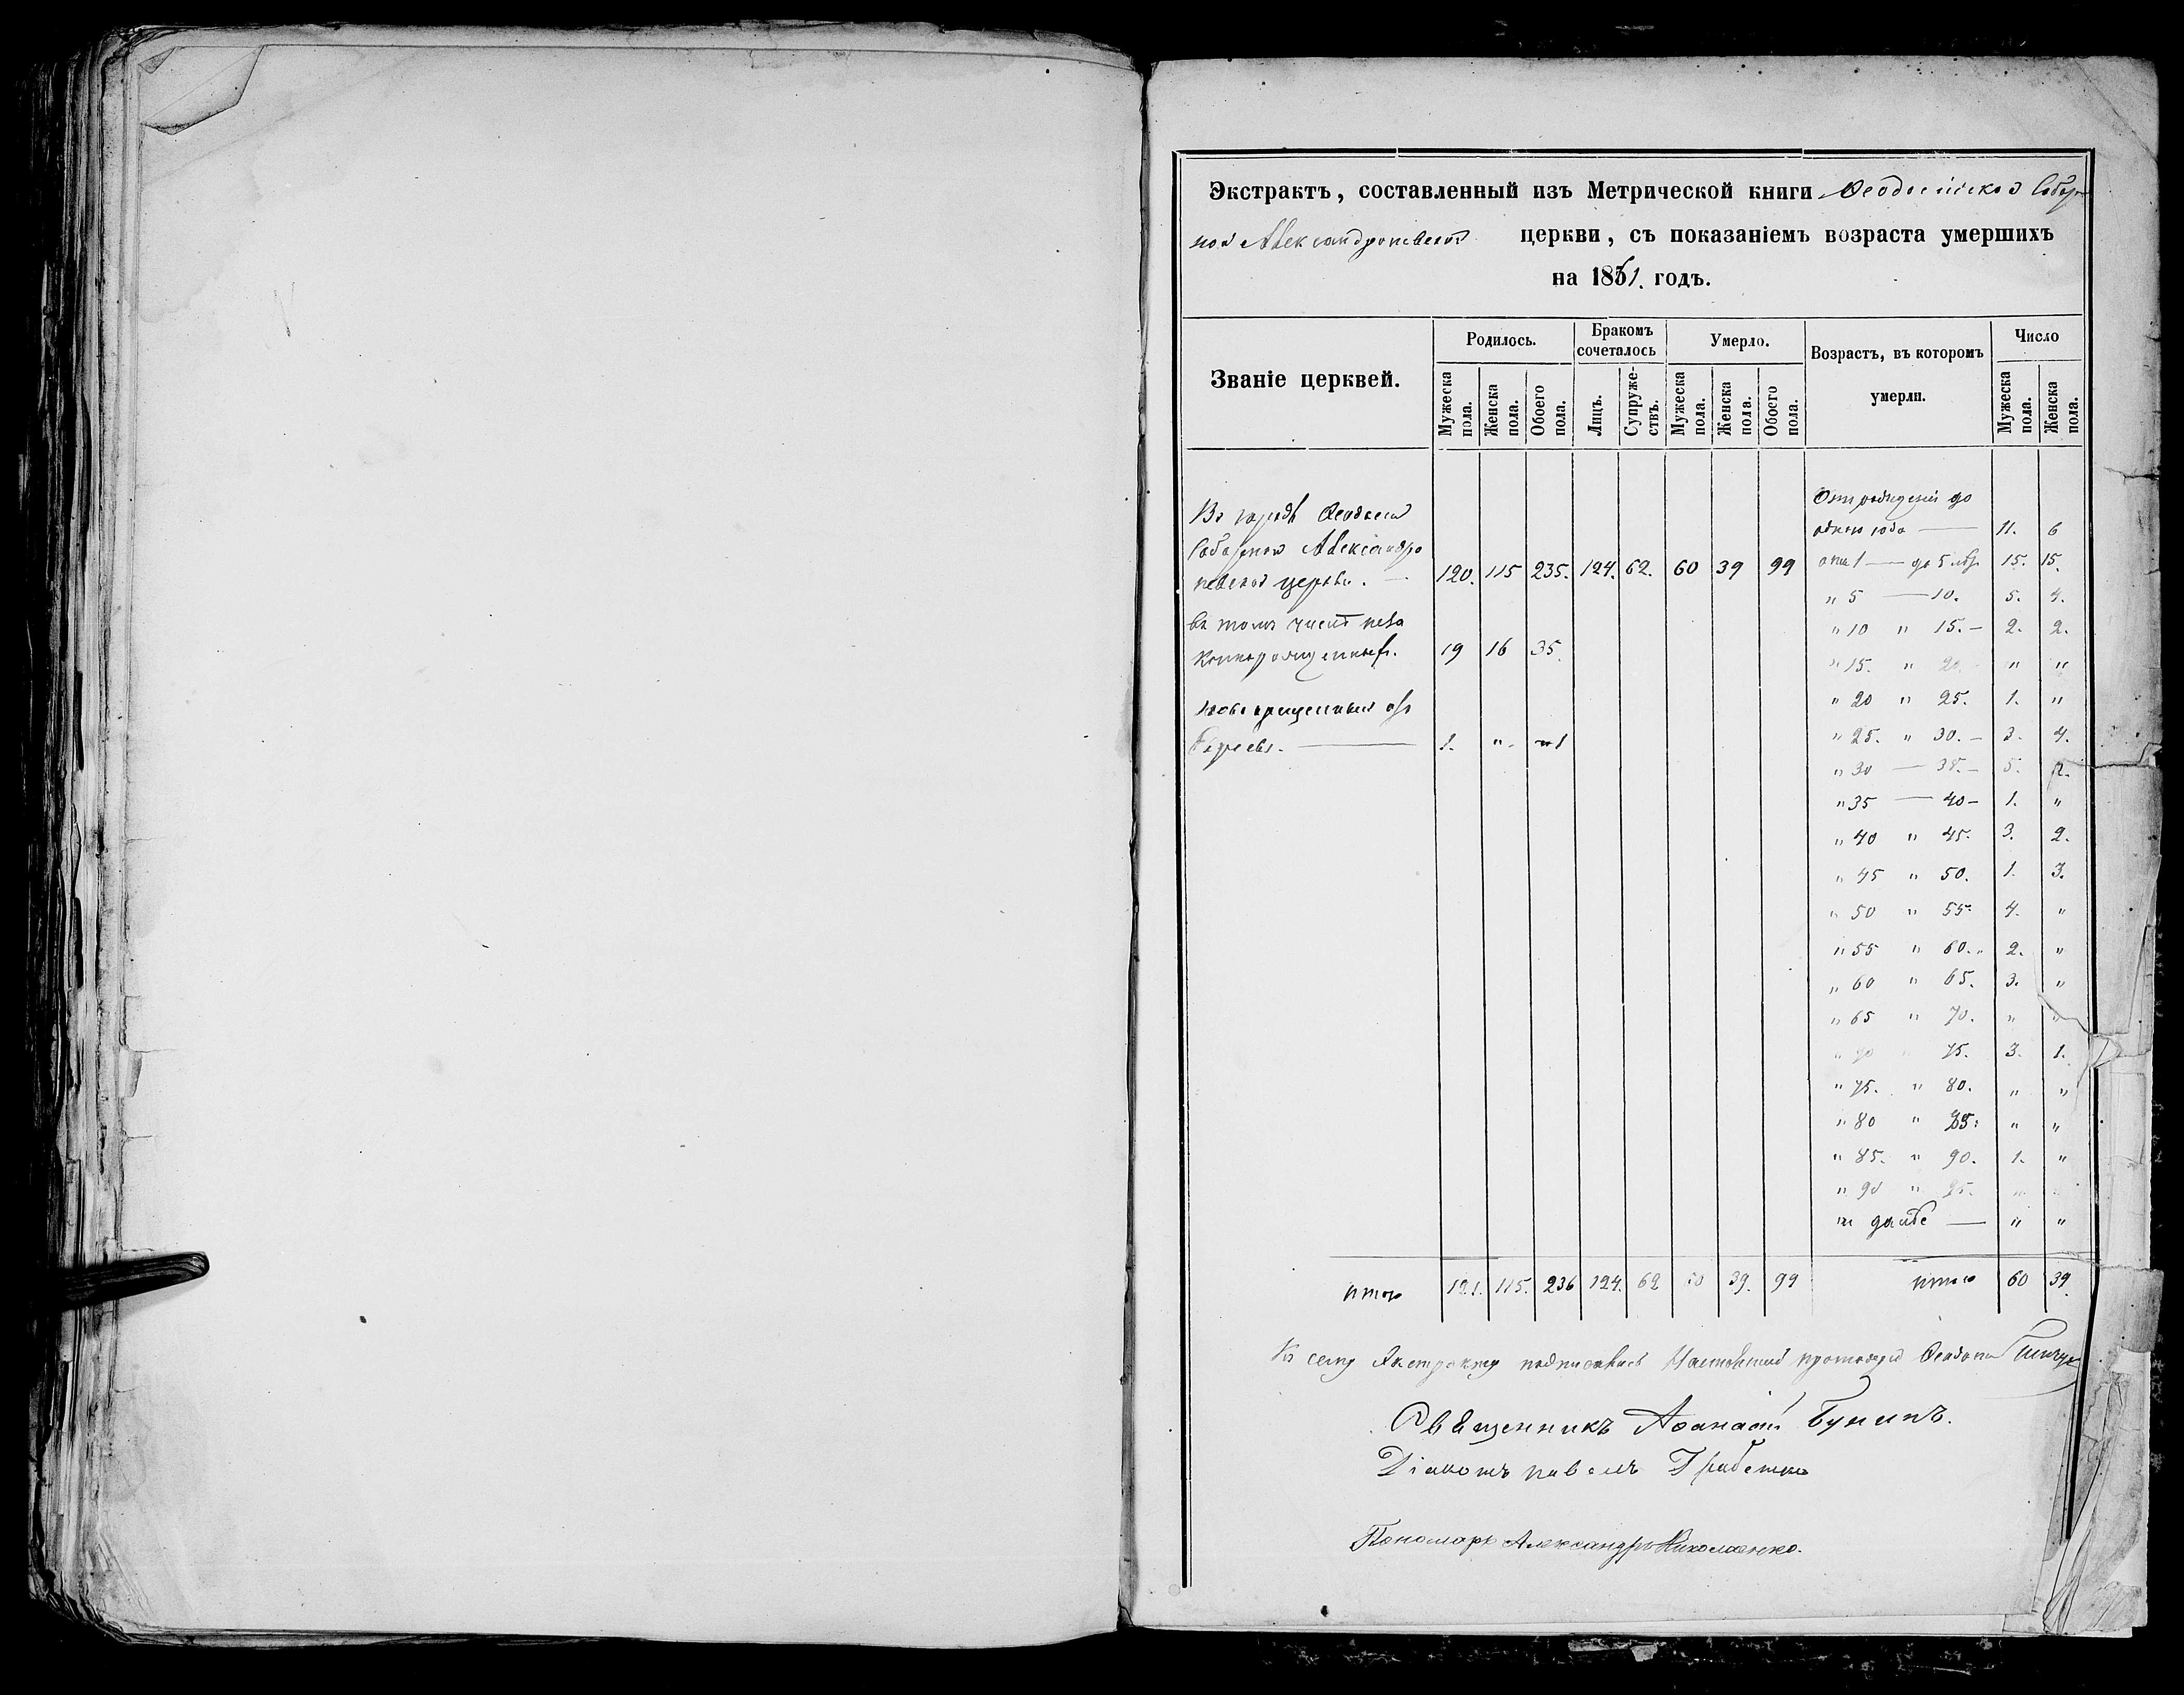 Экстрактъ, составленный изъ Метрической книги Ѳеодосійской Собор
ной Александроневской церкви, съ показаніемъ возраста умершихъ
на 1861. годъ.
Званіе церквей.
Родилось.
Бракомъ сочеталось
Умерло.
Возрастъ, въ которомъ умерли.
Число
Мужеска пола.
Женска пола.
Обоего пола.
Лицъ.
Супруже-ствъ.
Мужеска пола.
Женска пола.
Обоего пола.
Мужеска пола.
Женска пола.
Въ городѣ Ѳеодосіи
Соборной Александро
невской церкви. — 120. 115 235. 124. 62. 60 39 99
въ томъ числѣ неза
коннорожденныхъ. 19 16 35.
новокрещенныхъ изъ
Евреевъ. — 1. " 1
Отъ рожденія до
одного года — 11. 6
отъ 1 — до 5 лѣтъ 15. 15.
" 5 — 10. 5. 4.
" 10 " 15. — 2. 2.
" 15. " 20. " "
" 20 " 25. 1. "
" 25. " 30. — 3. 4.
" 30 — 35. — 5. 2.
" 35 — 40 — 1. "
" 40 " 45. 3. 2.
" 45 " 50. 1. 3.
" 50 " 55. 4. "
" 55 " 60. 2. "
" 60 " 65. 3. "
" 65 " 70. " "
" 70 " 75. 3. 1.
" 75. " 80. " "
" 80 " 85. " "
" 85. " 90. 1. "
" 90 " 95. " "
и далѣе — " "
Итого 121. 115. 236 124. 62 60 39. 99 Итого 60 39.
Къ сему Экстракту подписались Настоятель протоіерей
Священникъ Аѳанасій Бунинъ.
Діаконъ Павелъ
Пономарь Александръ Николаенко.